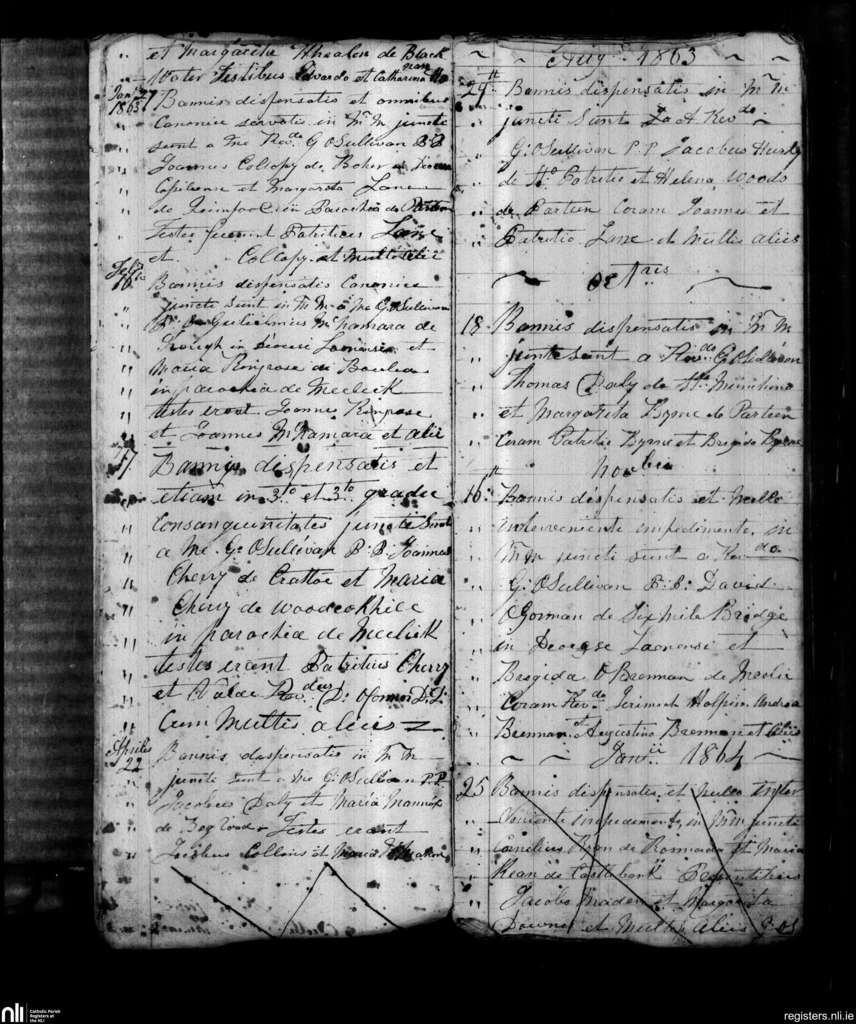 " et Margareta Whealen de Black
" Water Testibus Edvardo et Catharina
Jan 27
1863 Bannis dispensatis et omnibus
" Canonice servatis in Mm M juncti
" sunt a Me Revdo G OSullivan P.P.
" Joannes Collopy de Boher
" et Margarita Lane
" de Parochia de
" Testes fuerunt Patritius Lane
" et Collopy et Multis alii
Feb
16 Bannis dispensatis Canonice
" juncti sunt in M M a Me G OSullivan
P.P. Gulielmus McNamara de
in et
Maria Kinrose de
in parochia de Meelick
testes erant Joannes Kinrose
et Joannes McNamara et alii
17 Bannis dispensatis et
etiam in 3to et 3to gradu
" Consanguinitates juncti Sunt
" a Me G OSullivan P.P. Joannes
" Cherry de Crattoe et Maria
" Cherry de Woodcokhill
" in parochia de Meelick
" testes erant Patritius Cherry
" et Revdus D. OConnor
" Cum Multis aliis
Aprilis
22 Bannis dispensatis in M M
" juncti sunt a Me G. OSullivan P.P.
" Jacobus Daly et Maria Mannix
" de Testes erant
" Collins et Maria Whealen
~ ~ Aug 1863 ~ ~
24 Bannis dispensatis in Mm M
" juncti Sunt a Revdo
" G. OSullivan P.P. Jacobus Hurly
" de Sto Patritio et Helena Woods
" de Parteen Coram Joanne et
" Patritio Lane et Multis aliis
~ ~
18 Bannis dispensatis in Mm M
" juncti sunt a Revdo G OSullivan
" Thomas Daly de Sto Munchino
" et Margarita Byrne de Parteen
" Coram Patritio Byrne et Brigida Byrne
Novbis
16 Bannis dispensatis et Nullo
" interveniente impedimento, in
" Mm M juncti sunt a Revdo
" G. OSullivan P.P. David
" OGorman de Sixmile Bridge
" in Deocese Laonensi et
" Bregida O Brennan de
" Coram Revdo Jerimiah Halpin Andrea
" Brennan et Augustino Brennan et aliis
~ ~ Janrii 1864 ~
25 Bannis dispensatis et nullo inter
" Veniente impedimento, in Mm M juncti
" Cornelius Ryan de et Maria
" Kean de Castlebank
" Jacobo et Margarita
Downs et Multis aliis G. OS
nli
Catholic Parish
Registers at
the NLI
registers.nli.ie